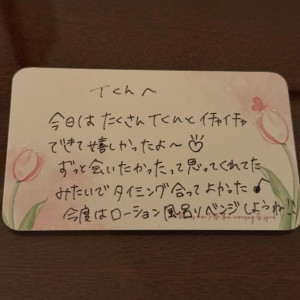 Tくんへ
今日は たくさん Tくんと イチャイチャ
できて嬉しかったよ～♡
ずっと会いたかったって思ってくれてた
みたいでタイミング合ってよかった♪
今度はローション風呂リベンジしようね!!